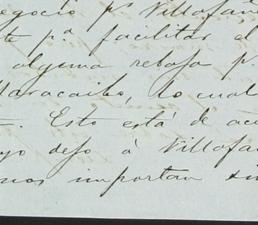 negocio pª Villafañ
te pª facilitar el
alguna rebaja p.
Maracaibo, lo cual
Esto está de acu
yo dejo á Villafa
nos importan